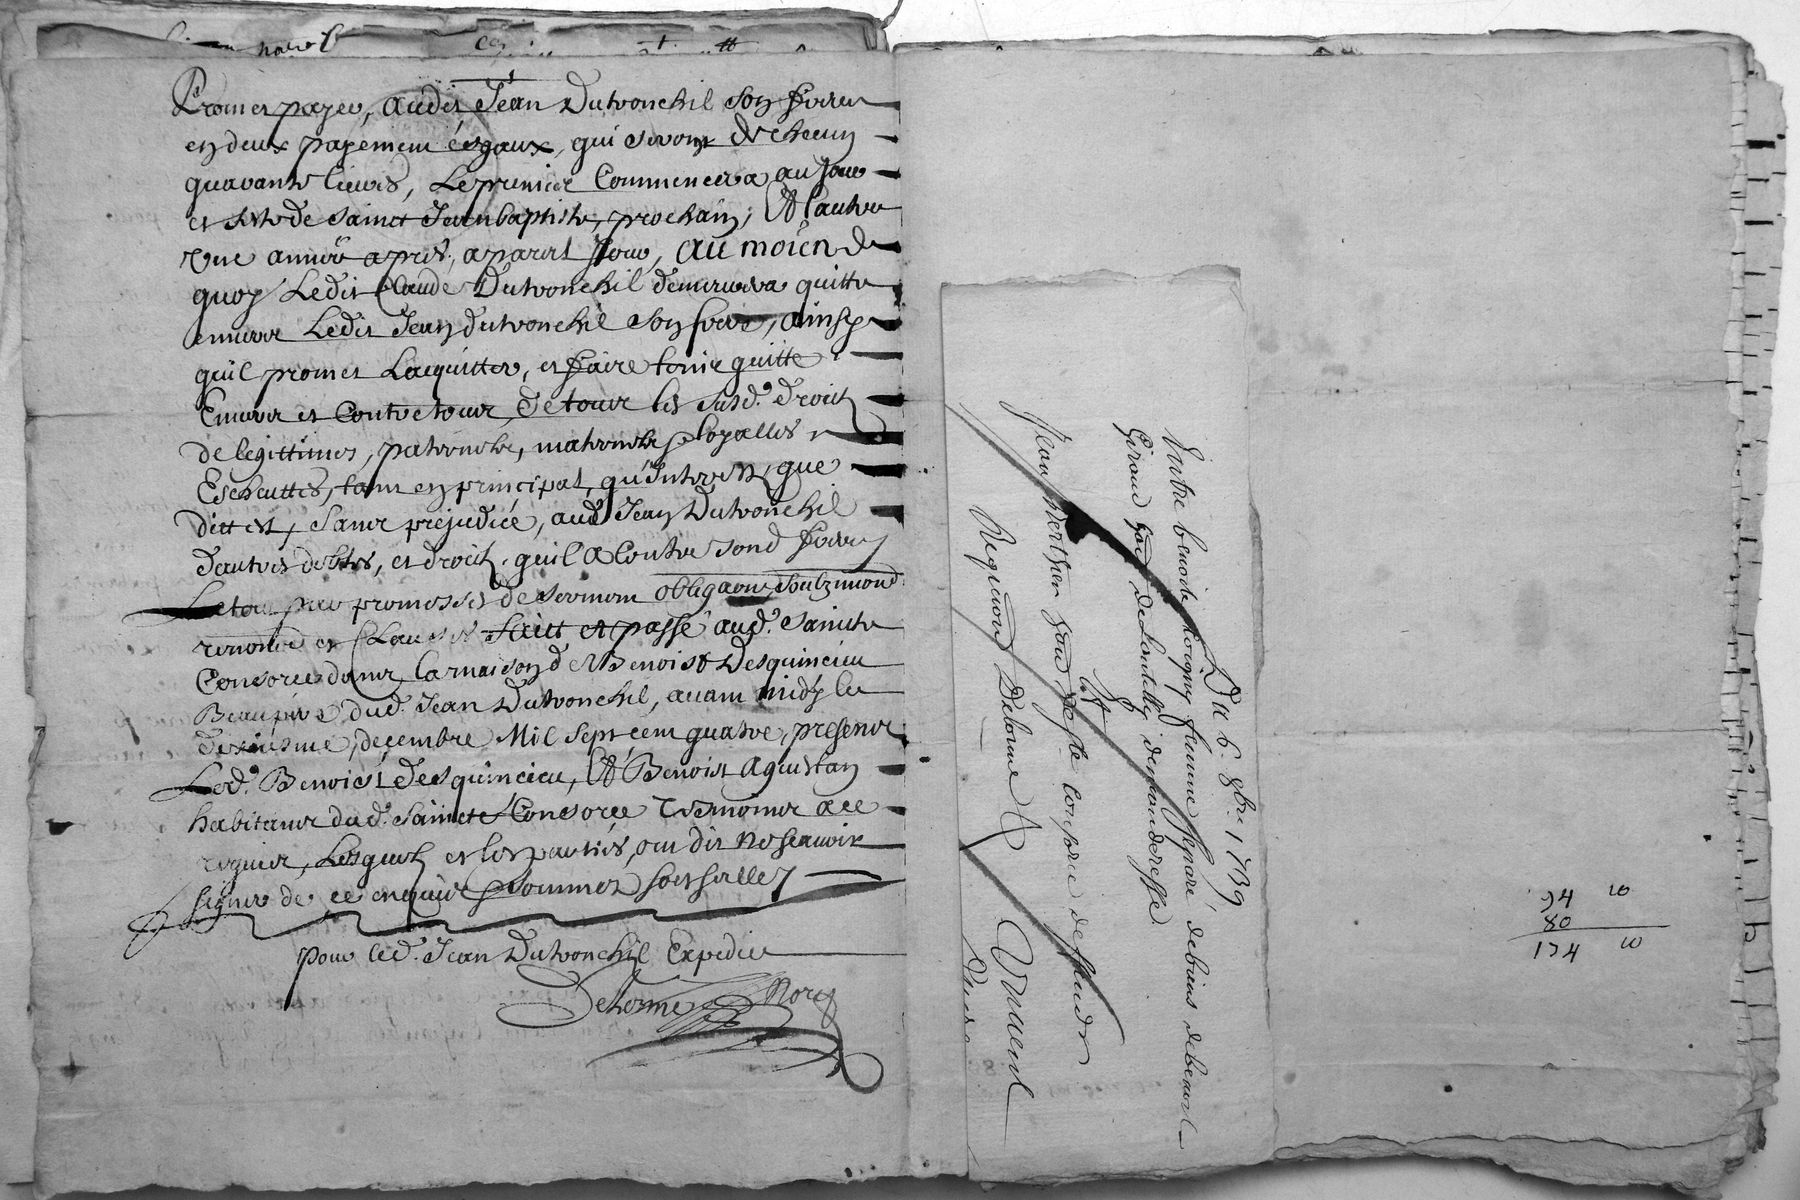 Promet payer, audit Jean Dutronchil son frere
en deux payement esgaux, qui seront de checun
quarante livres, Le premier Commencera au jour
et feste de sainct Jean baptiste, prochain; Et l'autre
Une année apres, a pareil Jour, au moien de
quoy Ledit Claude Dutronchil demeurera quitte
envers Ledit Jean dutronchil son frere, ainsy
qu'il promet L'acquitter, et faire tenir quitte
Envers et Contre tous, de tous les susd. droits
de legittimes, paternelle, maternelle,
Escheuttes, tant en principal, qu'Interestz, que
dict est, sans prejudice, aud Jean Dutronchil
d'autres debtes, et droitz, qu'il a Contre sond frere,
Le tout par promesses de serment obligaons soubzmons
renoncé et Clauses faict et passé aud. Saincte
Consorce dans la maison de Benoist Desquincieu
Beaupere dud. Jean Dutronchil, avant midy le
decembre Mil sept cent quatre, presentz
Led. Benoist Desquincieu, Et Benoist Aguistan
habitants dud. saincte Consorce Tesmoins a ce
requis, Lesquelz et les parties, ont dit ne scavoir
signer de ce enquis et sommez soit scellez
pour led. Jean Dutronchil Expedié
Delorme Nore
Du 6. 8bre 1739
Entre benoite femme separé de biens de benoist
Giraud de demanderesse
Et
Jean de Ste Consorce deffendr
Requerons Delorme
94 10
80
174 10